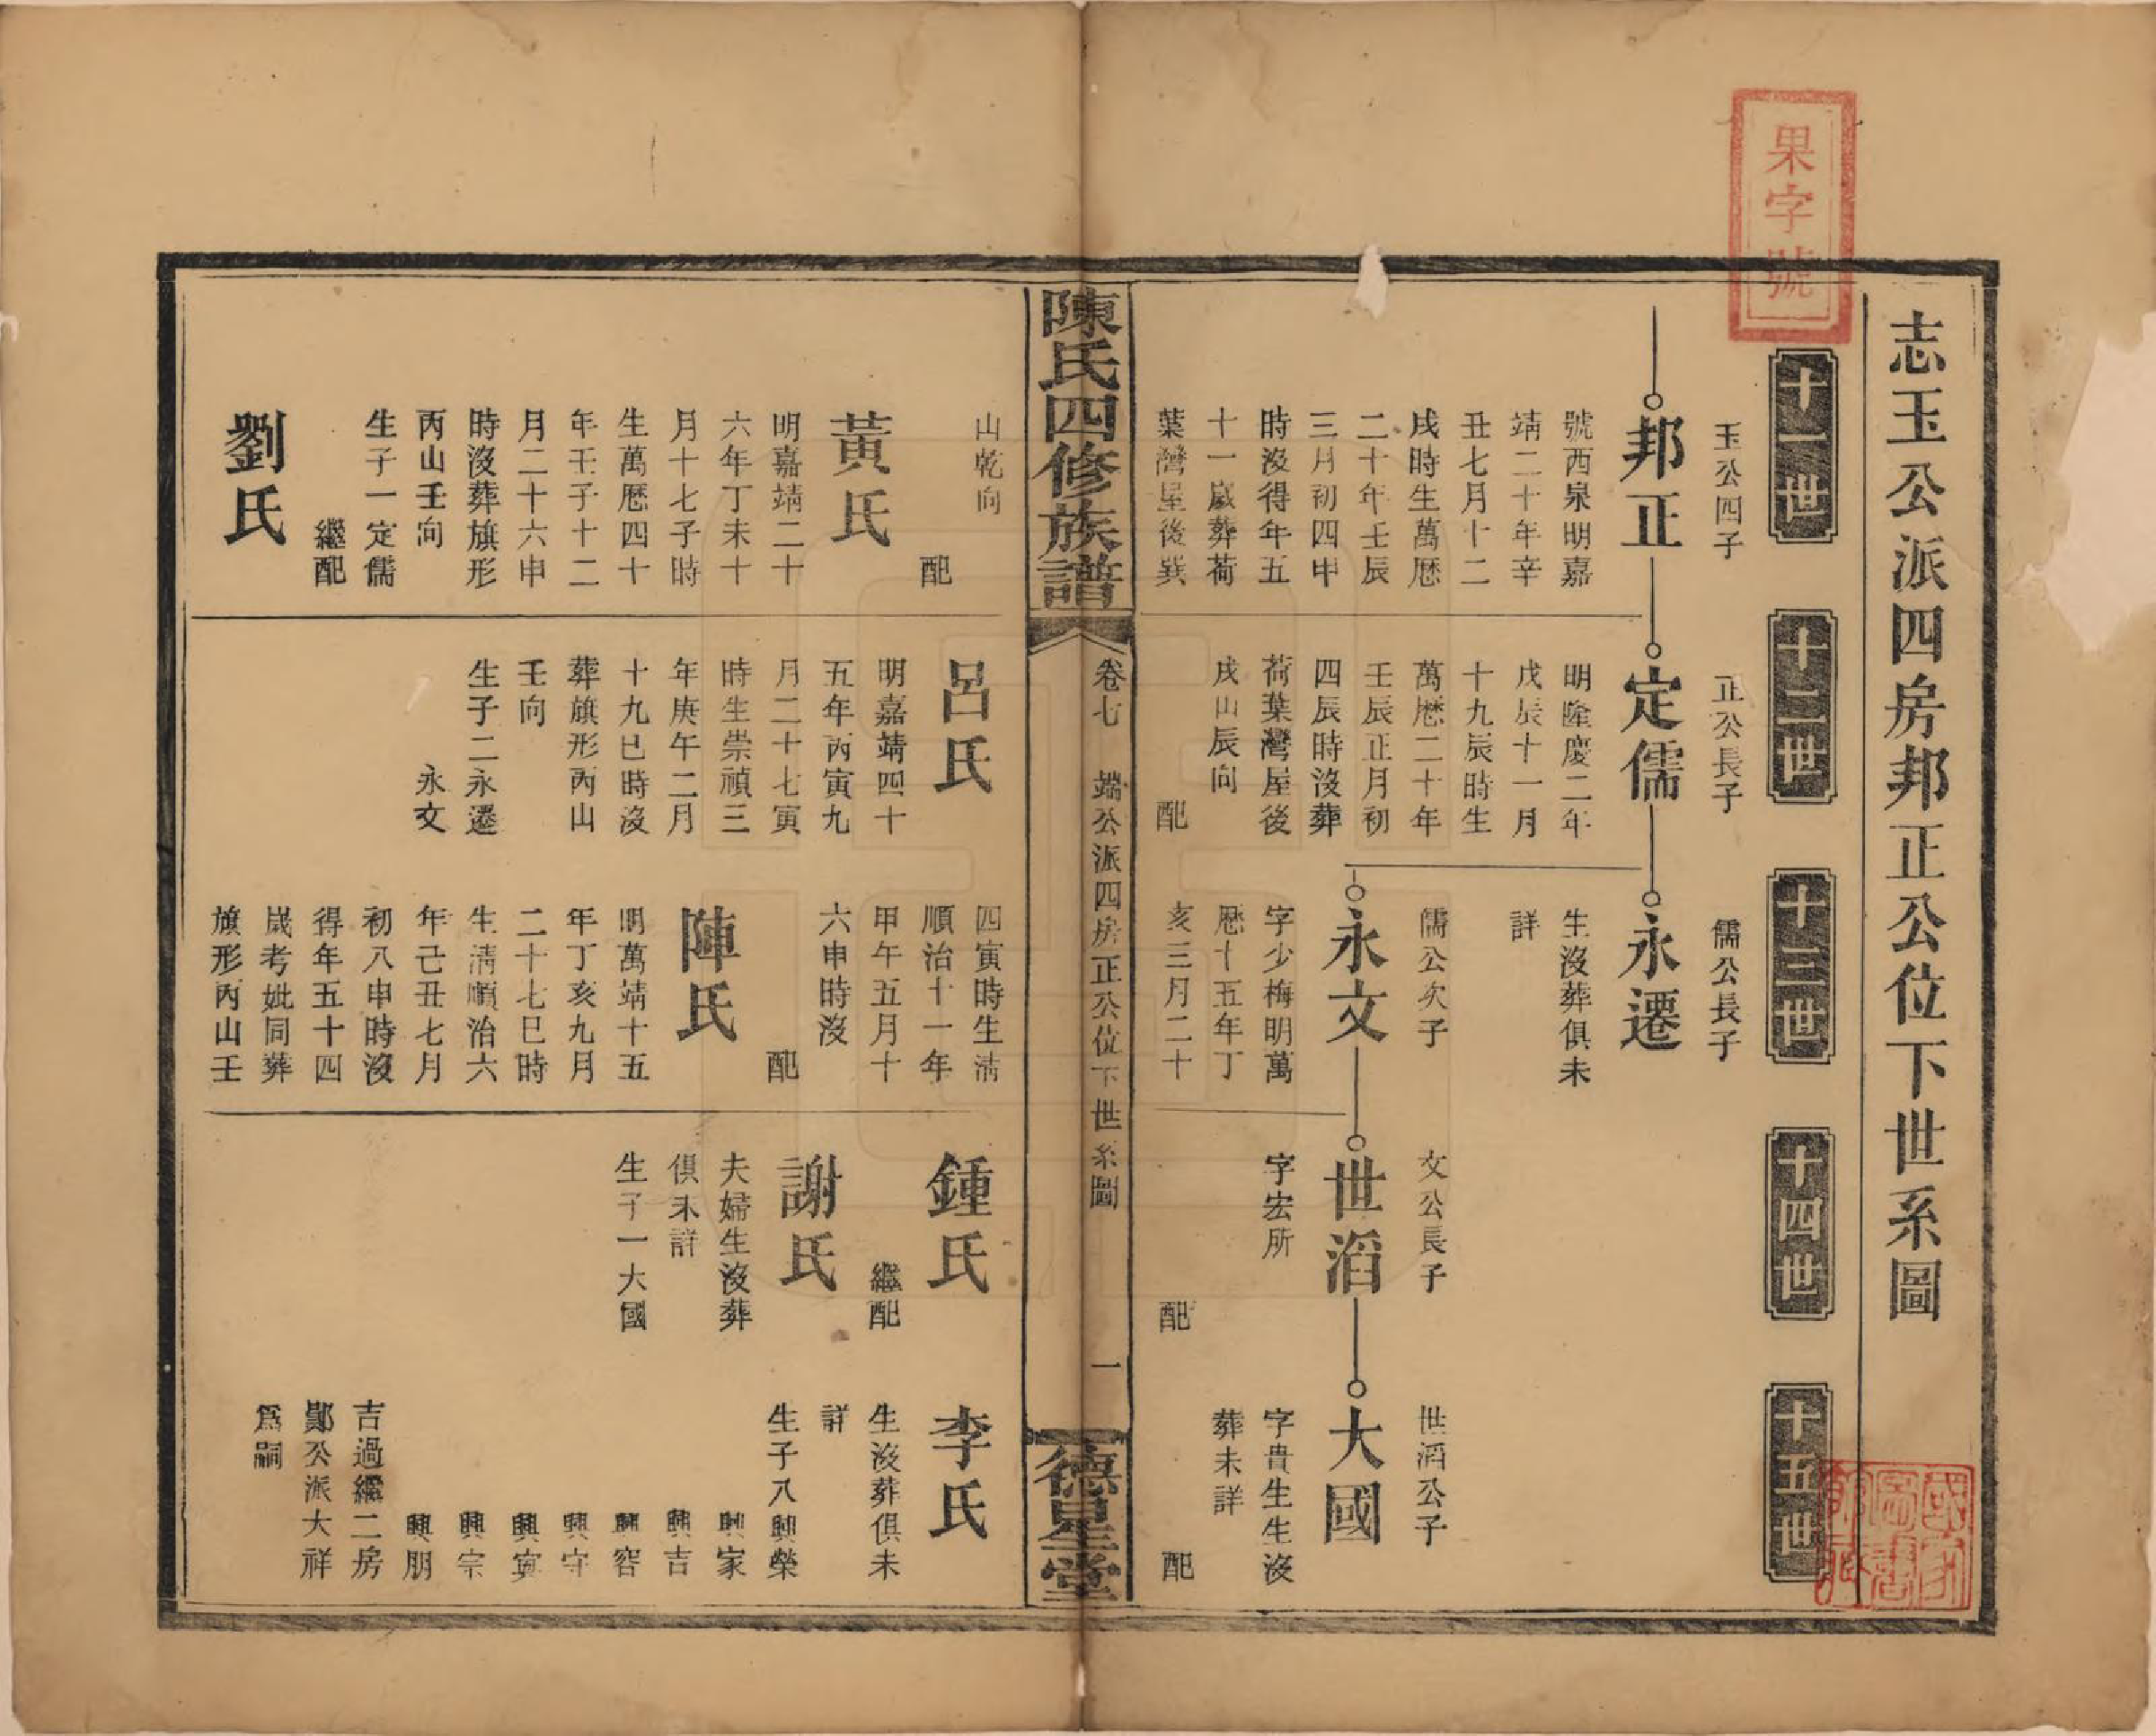 果字號
志玉公派四房邦正公位下世系圖
十一世
十二世
十三世
十四世
十五世
玉公四子
邦正
號西泉明嘉
靖二十年辛
丑七月十二
戌時生萬歷
二十年壬辰
三月初四申
時沒得年五
十一歲葬荷
葉灣屋後巽
正公長子
定儒
明隆慶二年
戊辰十一月
十九辰時生
萬歷二十年
壬辰正月初
四辰時沒葬
荷葉灣屋後
戌山辰向
配
儒公長子
永遷
生沒葬俱未
詳
儒公次子
永文
字少梅明萬
歷十五年丁
亥三月二十
文公長子
世滔
字宏所
配
世滔公子
大國
字貴生生沒
葬未詳
配
陳氏四修族譜
卷七
端公派四房正公位下世系圖
一
德星堂
山乾向
配
黃氏
明嘉靖二十
六年丁未十
月十七子時
生萬歷四十
年壬子十二
月二十六申
時沒葬旗形
丙山壬向
生子一定儒
繼配
劉氏
呂氏
明嘉靖四十
五年丙寅九
月二十七寅
時生崇禎三
年庚午二月
十九巳時沒
葬旗形丙山
壬向
生子二永遷
永文
四寅時生淸
順治十一年
甲午五月十
六申時沒
配
陳氏
明萬靖十五
年丁亥九月
二十七巳時
生淸順治六
年己丑七月
初八申時沒
得年五十四
歲考妣同葬
旗形丙山壬
鍾氏
繼配
謝氏
夫婦生沒葬
俱未詳
生子一大國
李氏
生沒葬俱未
詳
生子八興榮
興家
興吉
興容
興守
興寅
興宗
興朋
吉過繼二房
鄭公派大祥
爲嗣
國家
圖書